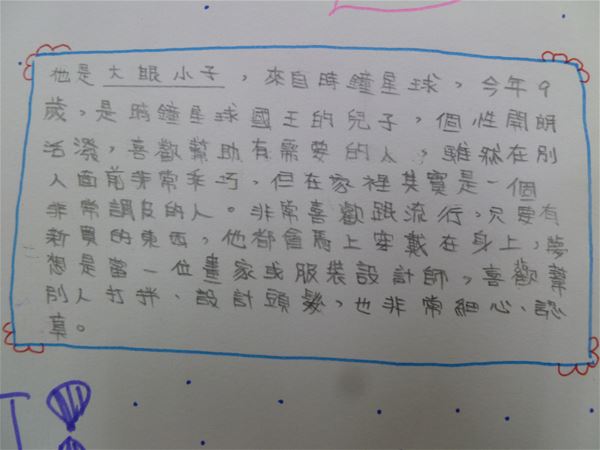 他是大眼小子，來自時鐘星球，今年9
歲，是時鐘星球國王的兒子，個性開朗
活潑，喜歡幫助有需要的人，雖然在別
人面前非常乖巧，但在家裡其實是一個
非常調皮的人。非常喜歡跟流行，只要有
新買的東西，他都會馬上穿戴在身上，夢
想是當一位畫家或服裝設計師，喜歡幫
別人打拌、設計頭髮，也非常細心、認
真。